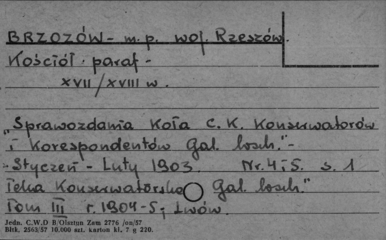 BRZOZÓW - m.p. woj. Rzeszów.
Kościół paraf -
XVII/XVIII w.
"Sprawozdania Koła C.K. Konserwatorów
i Korespondentów Gal. wsch." -
- Styczeń - Luty 1903. Nr. 4i5. s. 1
Teka Konserwatorska Gal. wsch."
Tom III r. 1904-5, Lwów.
Jedn. C.W.D-B/Olsztyn Zam 2776 /on/57
Bltk. 2563/57 10.000 szt. karton kl. 7 g 220.